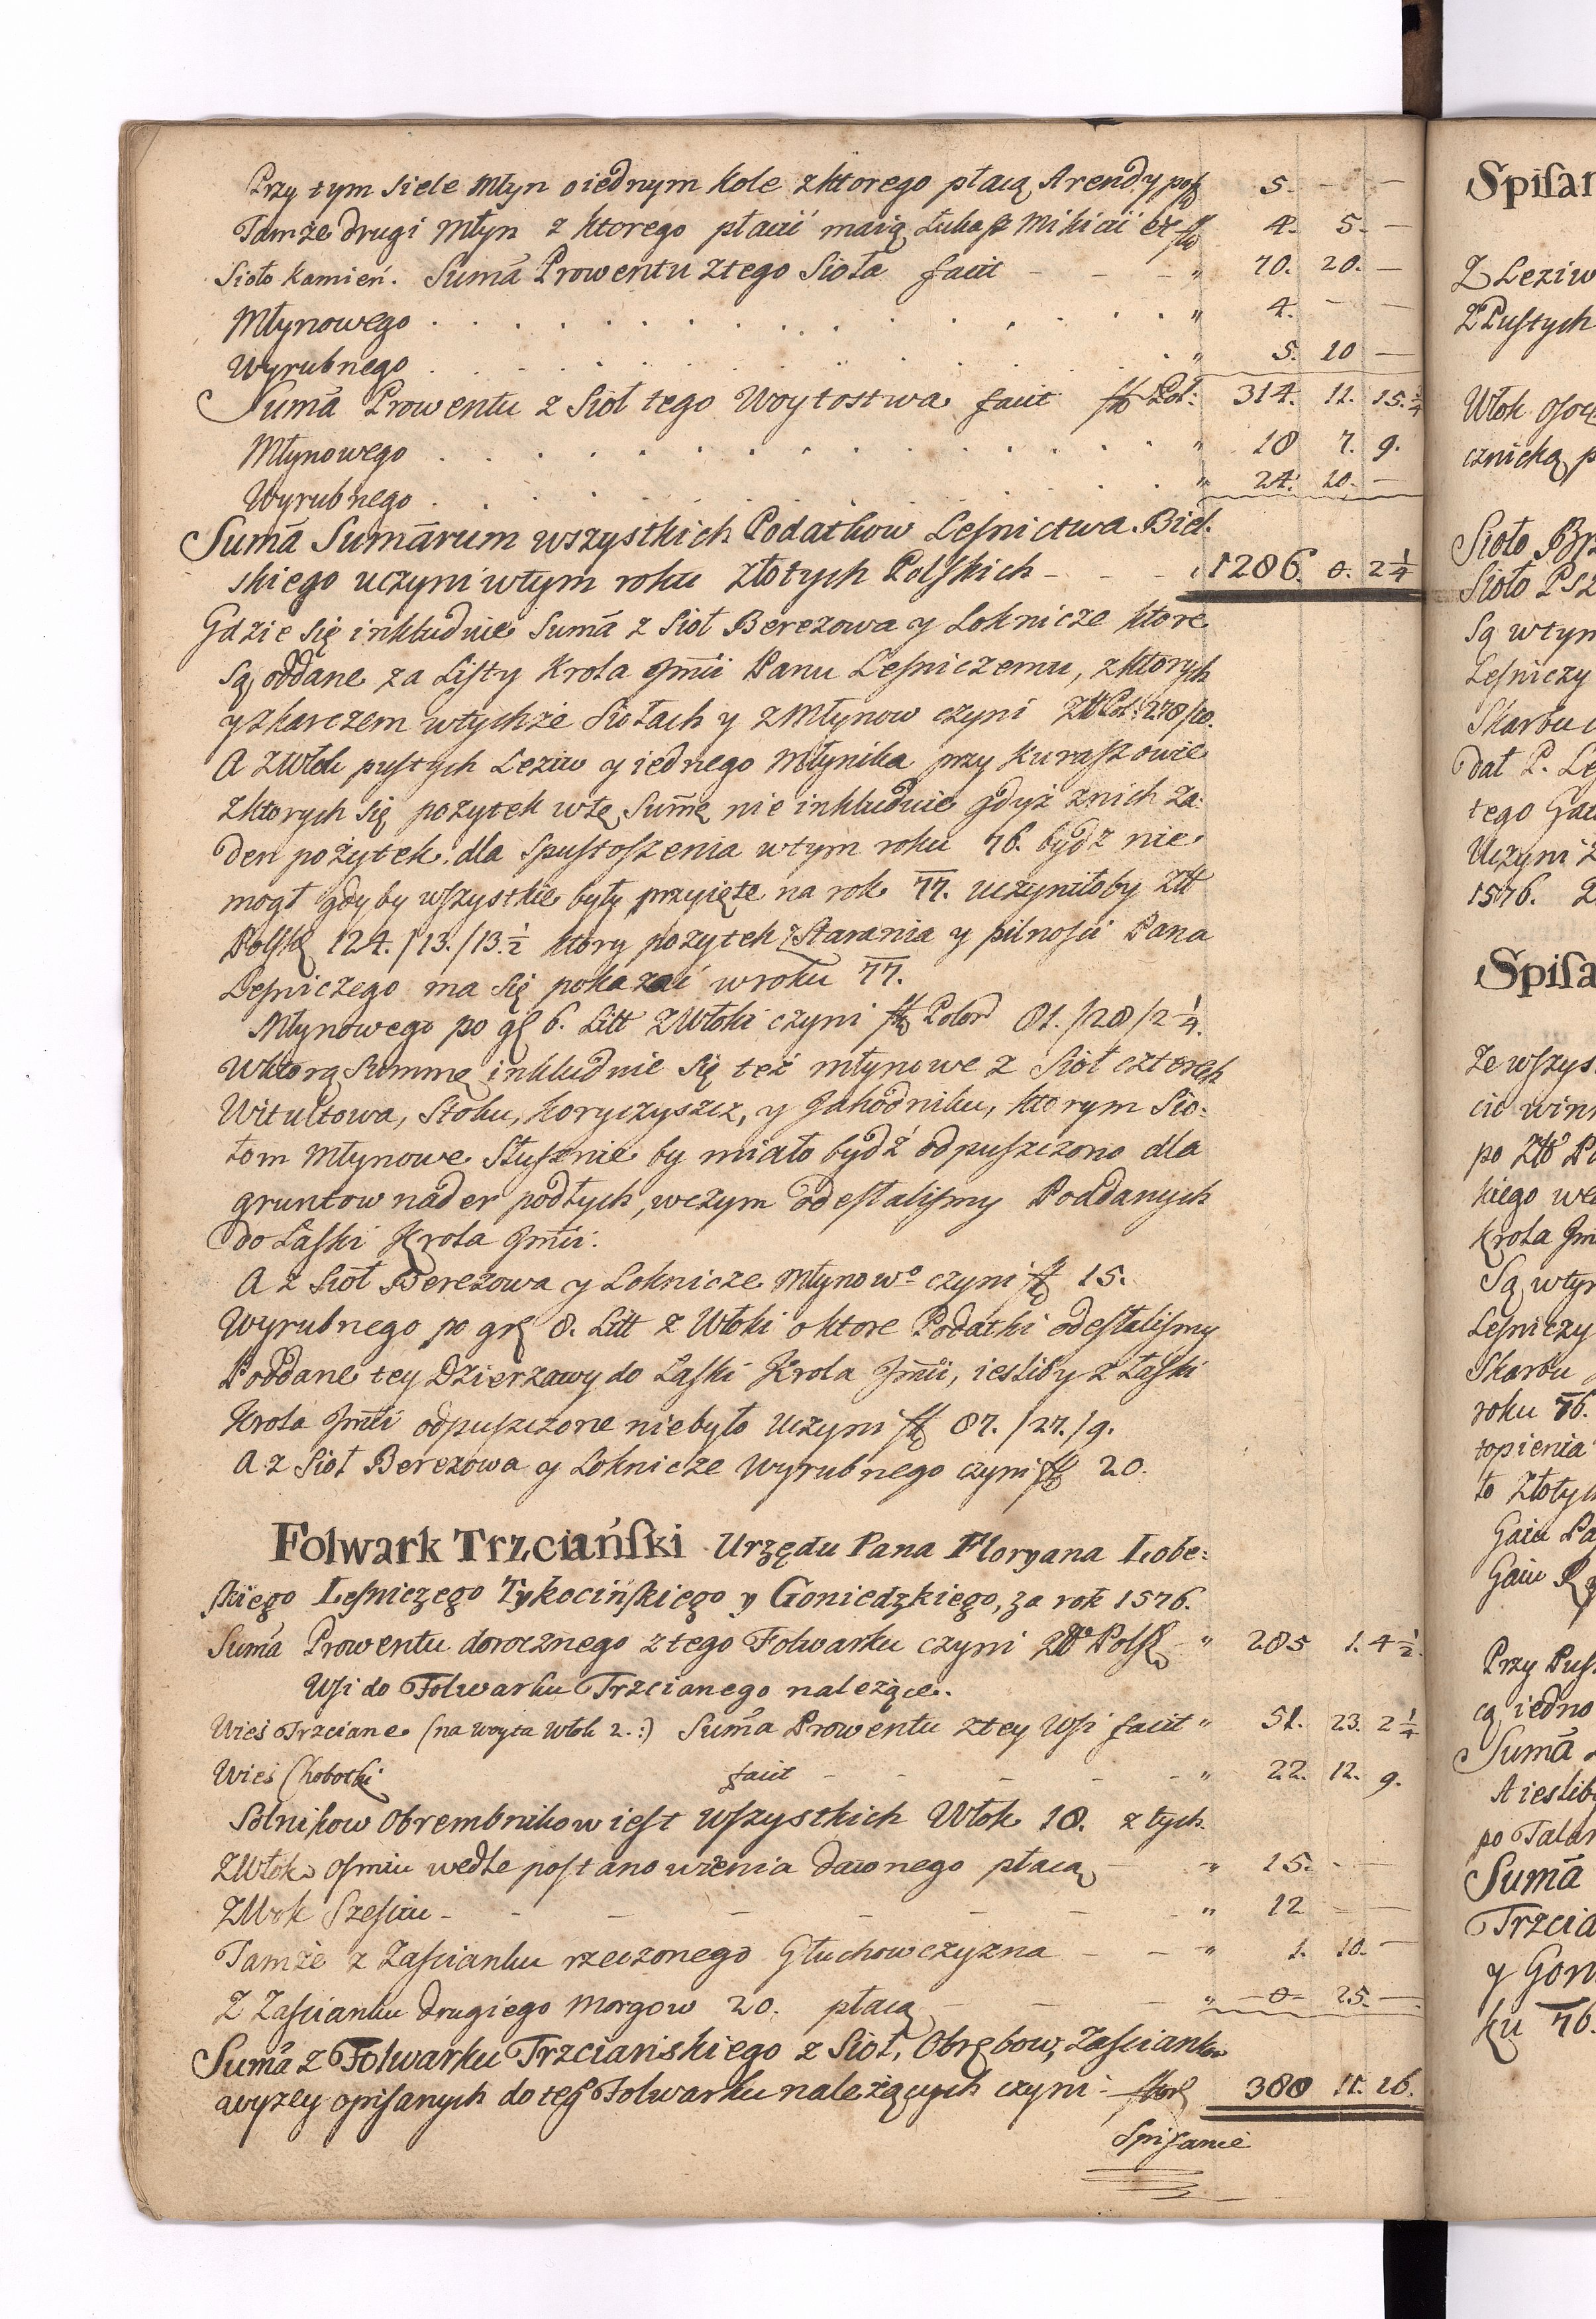 Przy tym Siele Młyn o iednym Kole z ktorego płacą Arendy 5. - -
Tamże drugi Młyn z ktorego płacić maią Łukasz Mikicić 4. 5. -
Sioło Kamień. Suma Prowentu z tego Sioła facit - - - " 70. 20. -
Młynowego . . . . " 4. - -
Wyrubnego . . . . " 5. 10 -
Suma Prowentu z Sioł tego Woytostwa facit fl Pol: 314. 11. 15.
Młynowego . . . . " 18 7. 9.
Wyrubnego . . . . " 24. 20. -
Suma Sumarum wszystkich Podatkow Lesnictwa Biel.
skiego uczyni w tym roku złotych Polskich - - - 1286. 0. 2 1/4
Gdzie się inkluduie Suma z Sioł Berezowa y Loknicze ktore
Są oddane za Listy Krola Jmci Panu Lesniczemu, z ktorych
y z karczem w tychże Siołach y z Młynow czyni Złł Pol:
A z Włok pustych Leziw y iednego Młynika przy Kuraszowie
z ktorych się pożytek w tę Sumę nie inkluduie gdyż z nich ża:
den pożytek dla Spustoszenia w tym roku 76. bydź nie
mogł gdyby wszystkie były przyięte na rok 77. uczyniłoby Złł
Polsk 124./13./13.1/2 ktory pożytek z Starania y pilności Pana
Lesniczego ma się pokazać w roku 77.
Młynowego po gr 6. Litt z Włoki czyni fl Polon 81./28/2 1/4.
W ktorą Summę inkluduie się też młynowe z Sioł cztorech
Witułtowa, Stoku, Koryczyszcz, y Jahodniku, ktorym Sio:
łom Młynowe Słusznie by miało bydź odpuszczono dla
gruntow nader podłych, w czym odesłalismy Poddanych
do Łaski Krola Jmci.
A z Sioł Berezowa y Loknicze Młynowº czyni fl 15.
Wyrubnego po gr 8. Litt z Włoki o ktore Podatki odesłalismy
Poddane tey Dzierzawy do Łaski Krola Jmci, iesliby z Łaski
Krola Jmci odpuszczone niebyło uczyni fl 87./27./9.
A z Sioł Berezowa y Loknicze Wyrubnego czyni fl 20.
Folwark Trzciański Urzędu Pana Floryana Łobe:
skiego Leśniczego Tykocińskiego y Goniedzkiego, za rok 1576.
Suma Prowentu dorocznego z tego Folwarku czyni Złł Polsk - " 285 1. 4 1/2.
Wsi do Folwarku Trzcianego należące.
Wieś Trzciane (na woyta włok 2.:) Suma Prowentu z tey Wsi facit " 51. 23. 2 1/4
Wieś Chobotki facit - - - - " 22. 12. 9.
Solnikow Obrembnikow iest wszystkich Włok 18. z tych.
z Włok osmiu wedle postanowienia dawnego płacą - " 15. - -
z Włok Szesciu - - - - " 12 - -
Tamże z Zascianku rzeczonego Głuchowczyzna - - " 1. 10. -
Z Zascianku drugiego Morgow 20. płacą - - - " -0- 25. -
Suma z Folwarku Trzcianskiego z Sioł, Obrębow, Zascianku
wyzey opisanych do teg Folwarku należących czyni 388 11. 16.
Spisanie
Spisan
Z Leziw
Z Pustych
Włok
cznicką p
Sioło
Sioło
Są w tym
Lesniczy
Skarbu
dał P. Les
tego
Uczyni
1576.
Spisa
Ze wszys
cić winn
po
kiego
Krola Jm
Są w tym
Lesniczy
Skarbu
roku 76.
topienia
to złotych
Gaiu
Gaiu
Przy
cą iedno
Suma
A iesliby
po Talar
Suma
Trzcia
y Gon
ku 76.